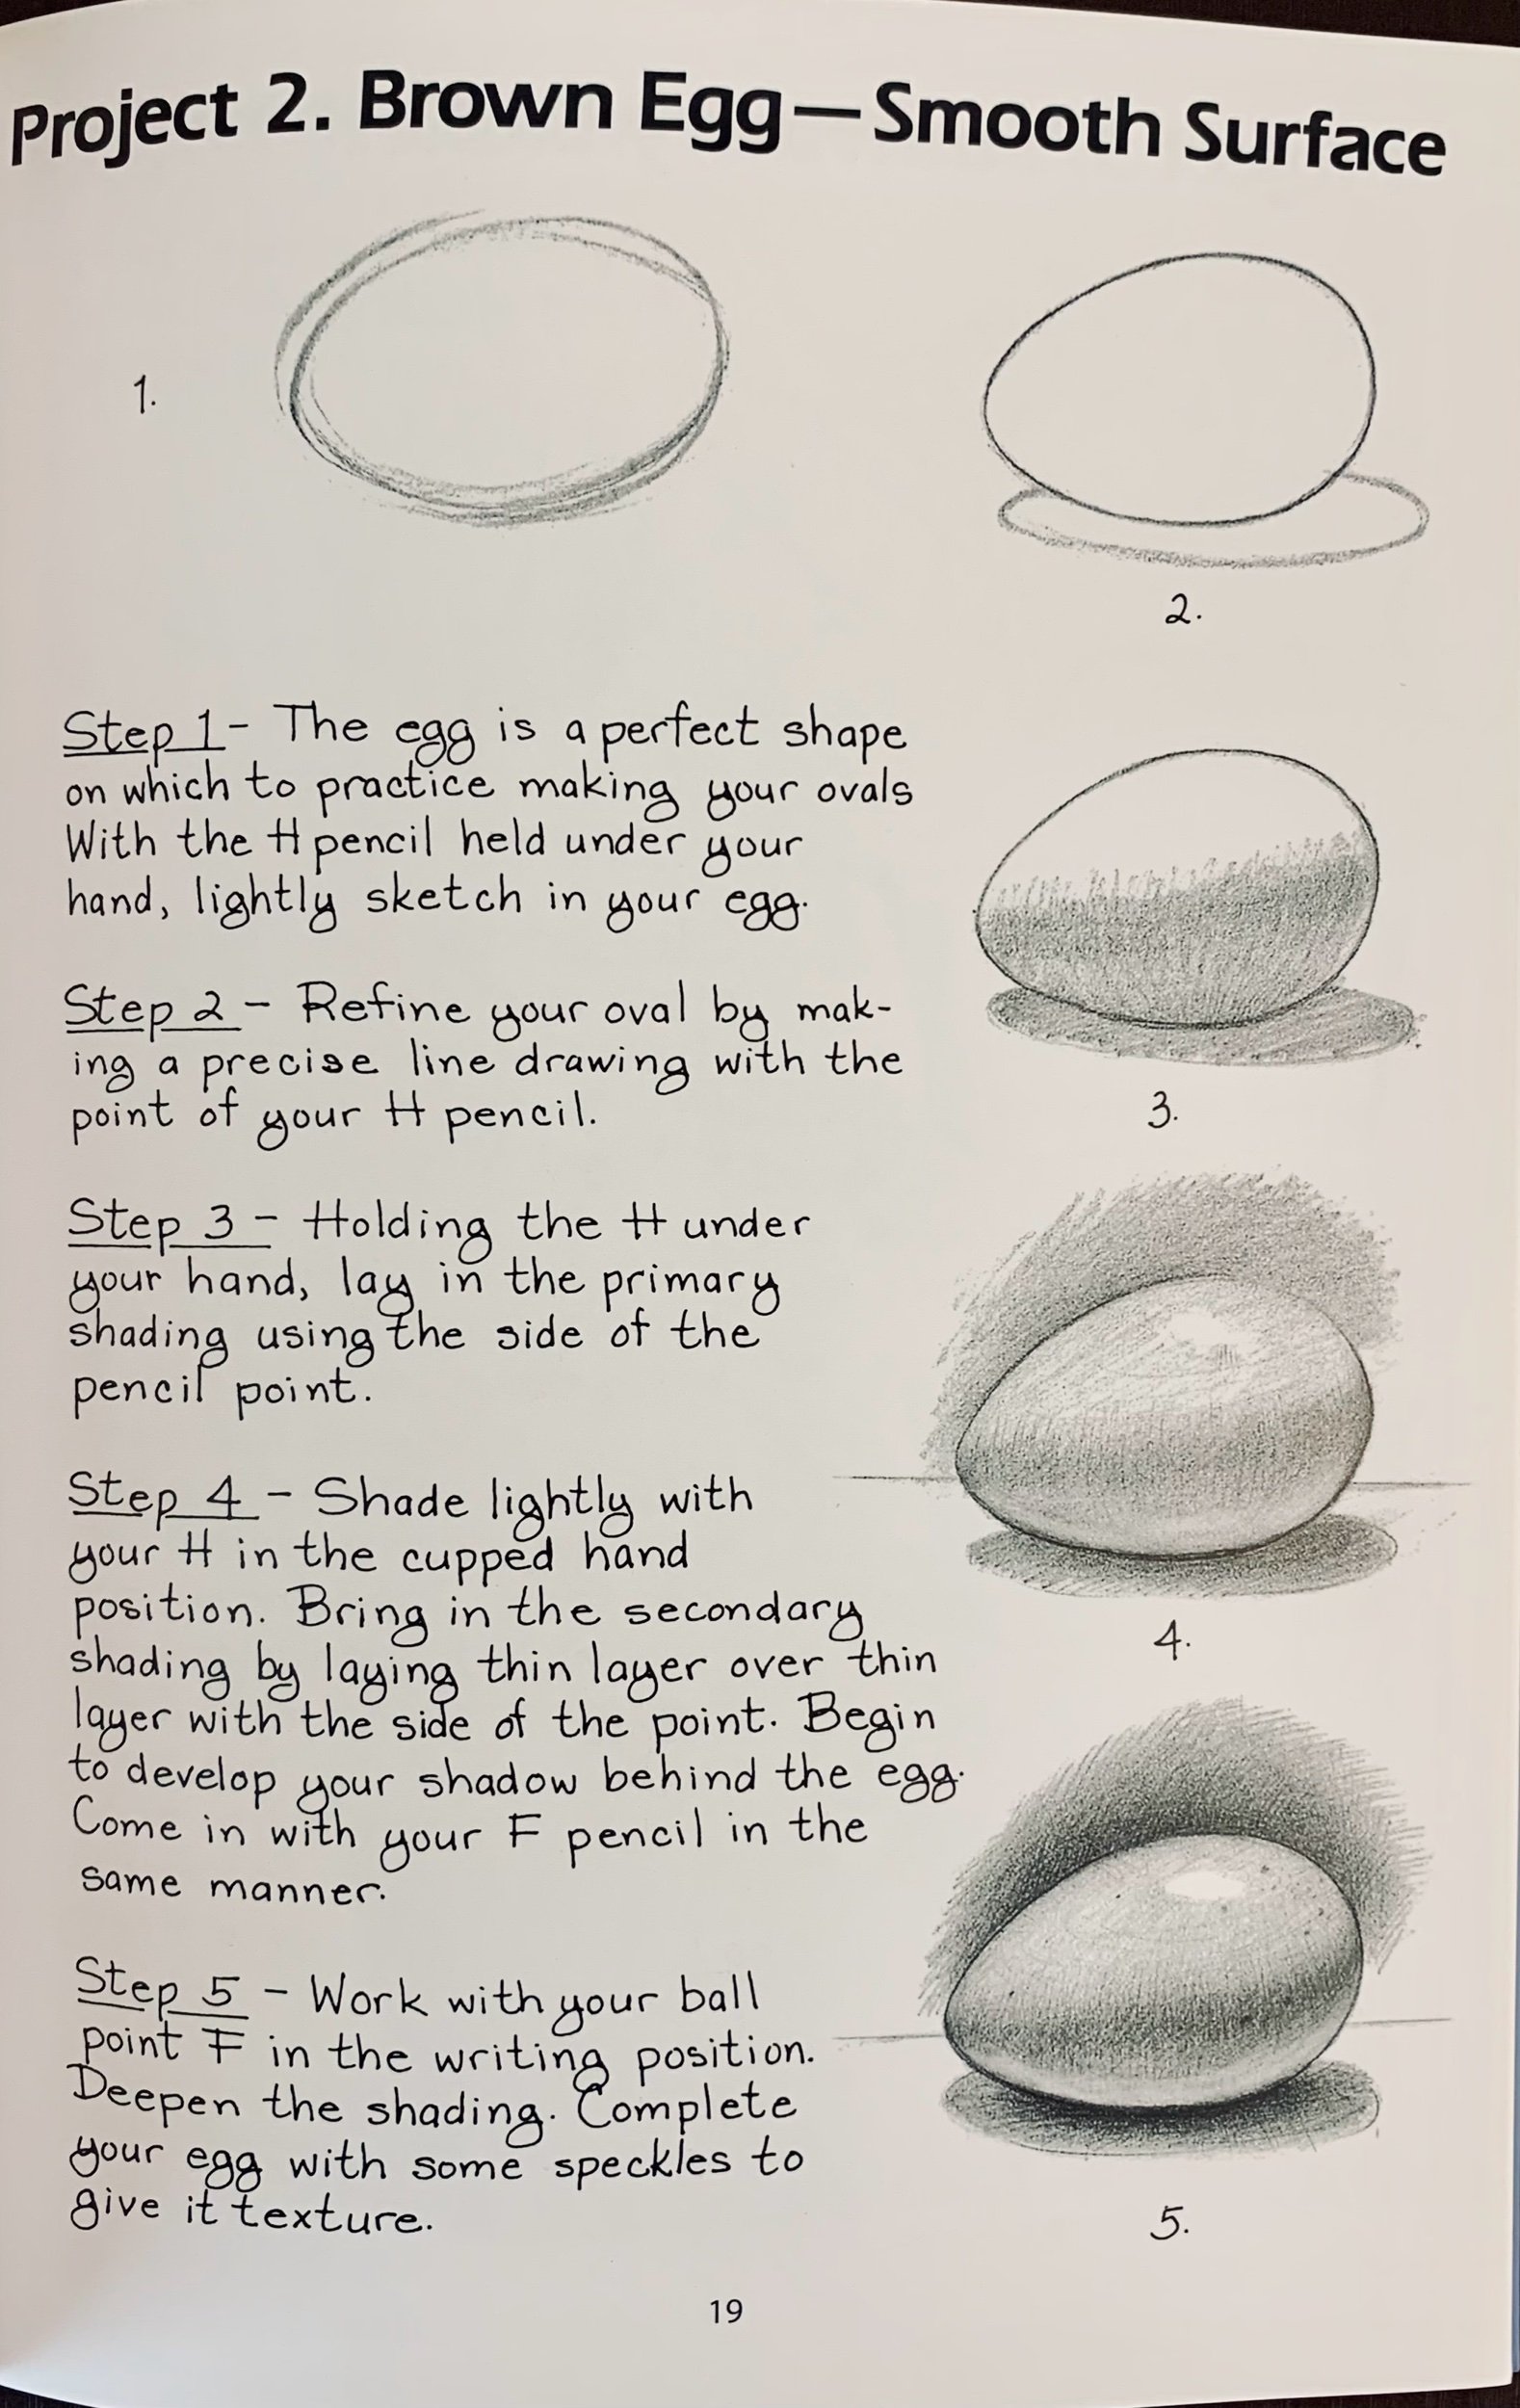 Project 2. Brown Egg—Smooth Surface
1.
2.
Step 1- The egg is a perfect shape
on which to practice making your ovals
With the H pencil held under your
hand, lightly sketch in your egg.
Step 2 - Refine your oval by mak-
ing a precise line drawing with the
point of your H pencil.
3.
Step 3 - Holding the H under
your hand, lay in the primary
shading using the side of the
pencil point.
Step 4 - Shade lightly with
your H in the cupped hand
position. Bring in the secondary
shading by laying thin layer over thin
layer with the side of the point. Begin
to develop your shadow behind the egg.
Come in with your F pencil in the
same manner.
4.
Step 5 - Work with your ball
point F in the writing position.
Deepen the shading. Complete
your egg with some speckles to
give it texture.
5.
19